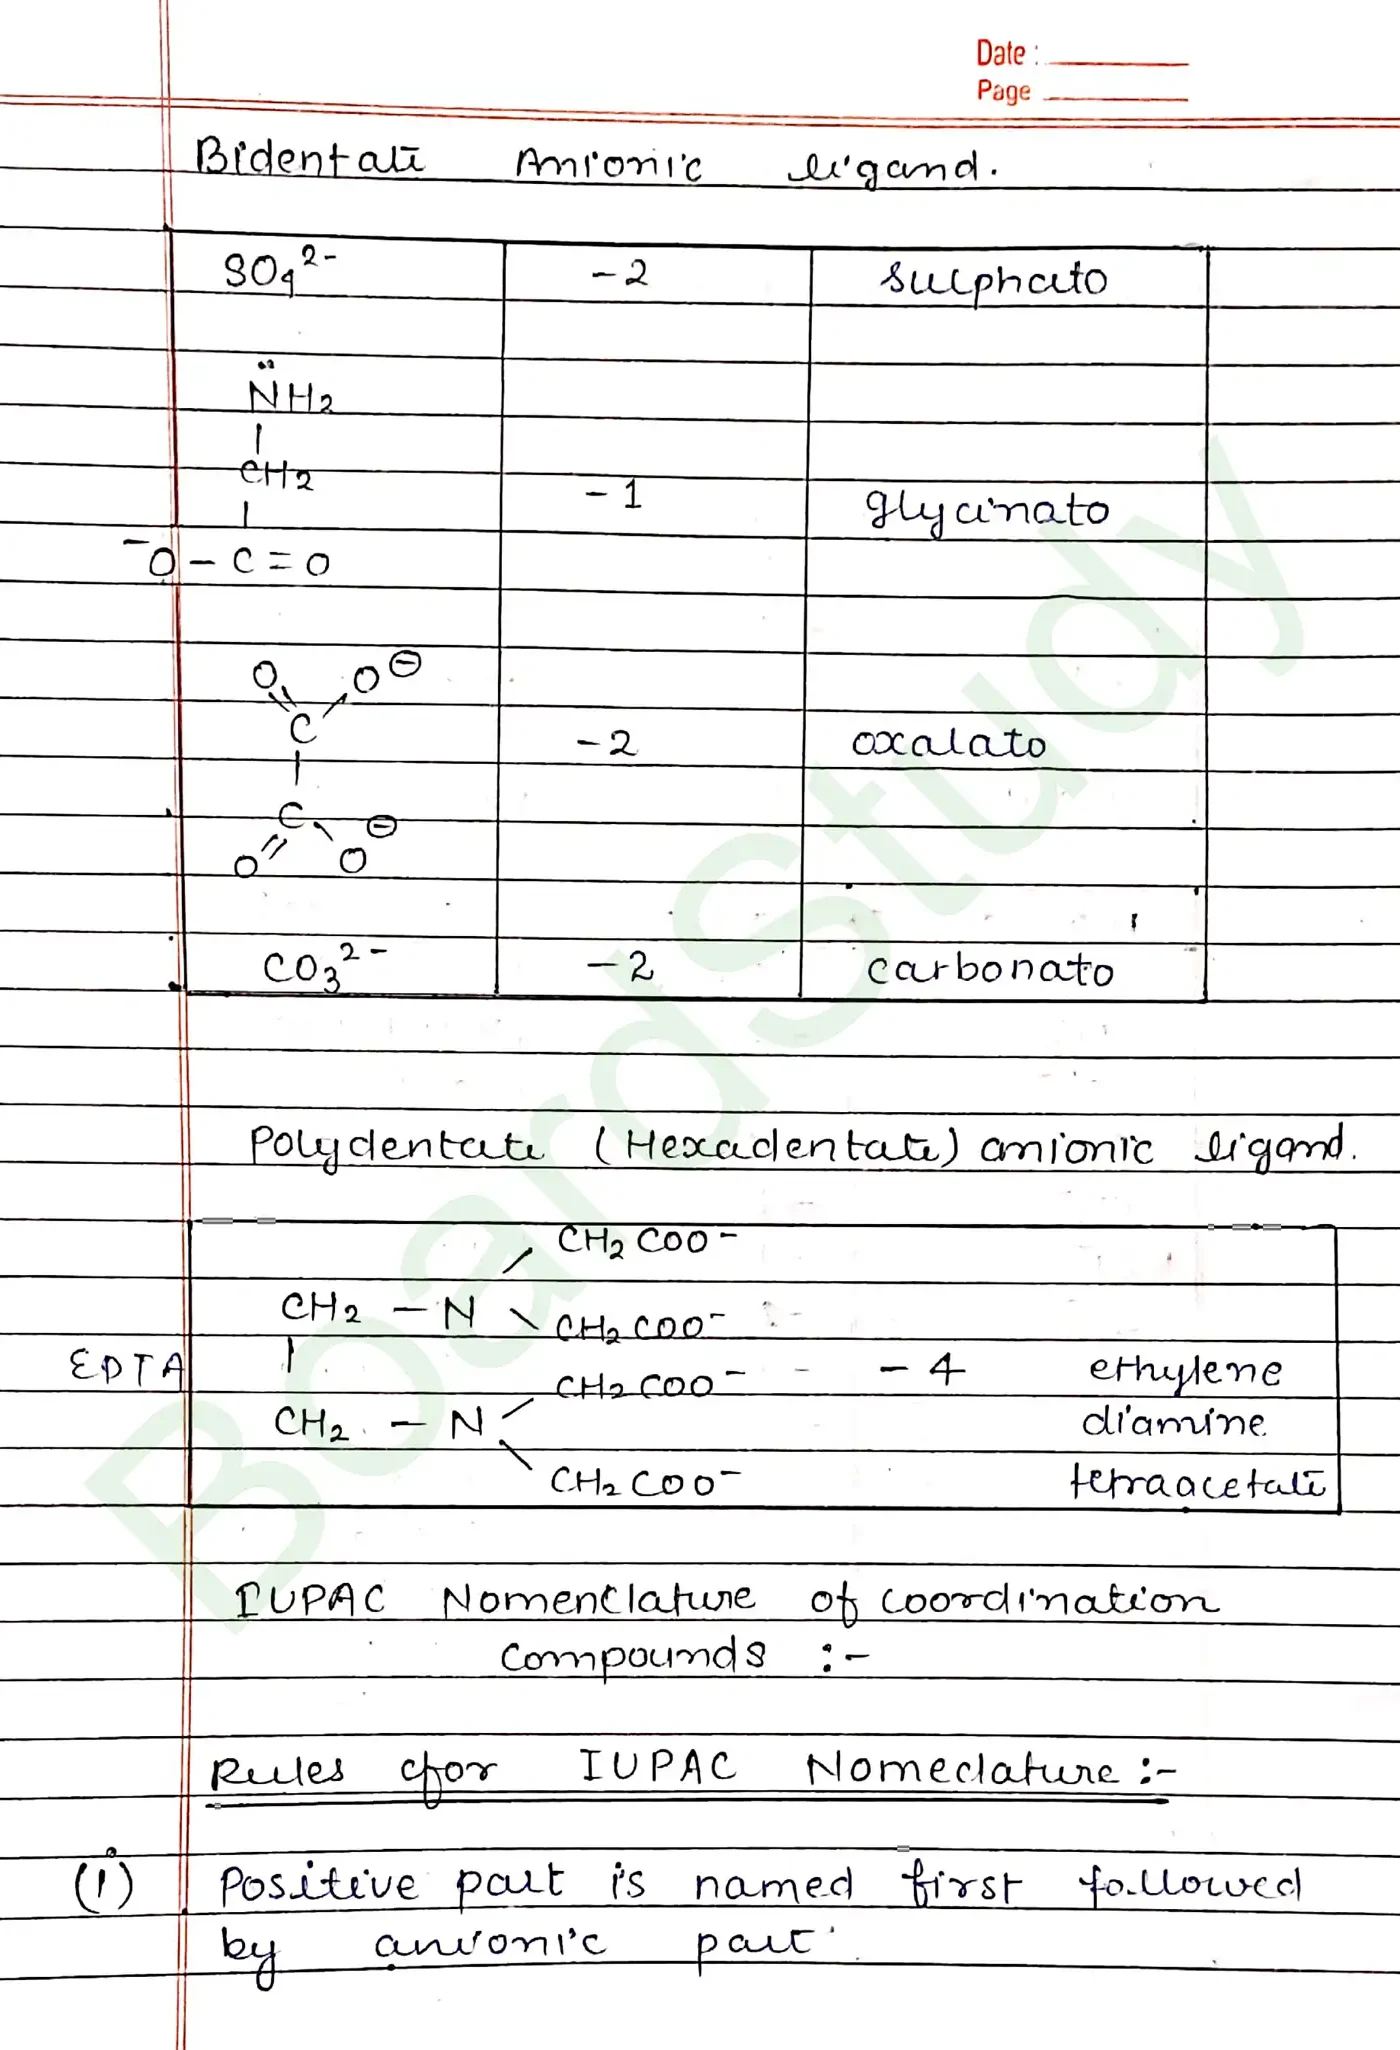 Date :
Page
Bidentate Anionic ligand.
SO4 2- -2 sulphato
N̈H2
|
CH2
-1 glycinato
|
-O - C = O
O O⊖
C
-2 oxalato
|
C ⊖
O O
CO3 2- -2 carbonato
Polydentate (Hexadentate) anionic ligand.
CH2COO-
CH2 - N CH2COO-
EDTA | CH2COO- - 4 ethylene
CH2 - N diamine
CH2COO- tetraacetate
IUPAC Nomenclature of coordination
compounds :-
Rules for IUPAC Nomeclature :-
(i) Positive part is named first followed
by anionic part
BoardStudy